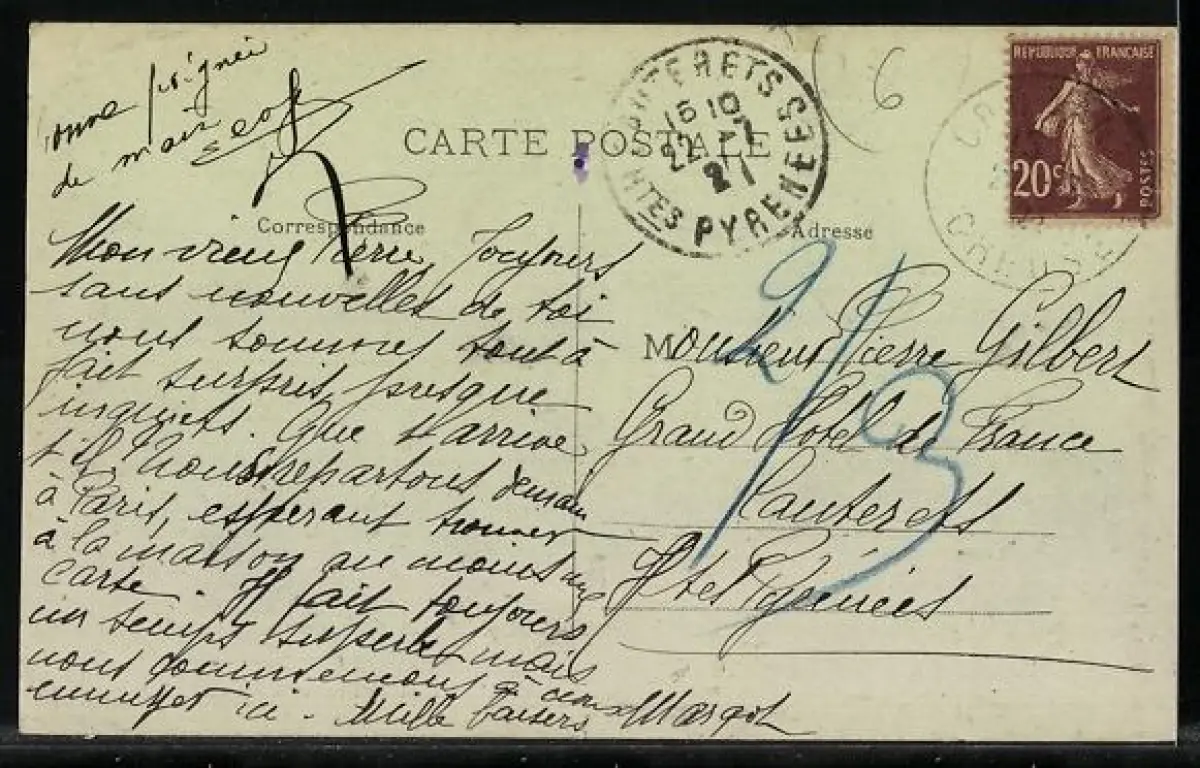 bonne poignée
de main
CARTE POSTALE
Correspondance
Adresse
6
REPUBLIQUE FRANÇAISE
20c
POSTES
CAUTERETS
16 10
22 -7
21
HTES PYRENEES
CREUSE
Mon vieux Pierre, Toujours
sans nouvelles de toi
nous sommes tout à
fait surpris, presque
inquiets. Que t'arrive
t'il. Nous repartons demain
à Paris, espérant trouver
à la maison au moins une
carte. Il fait toujours
un temps superbe mais
nous commençons à
ennuyer ici. Mille baisers Margot
Monsieur Pierre Gilbert
Grand Hotel de France
Cauterets
Htes Pyrénées